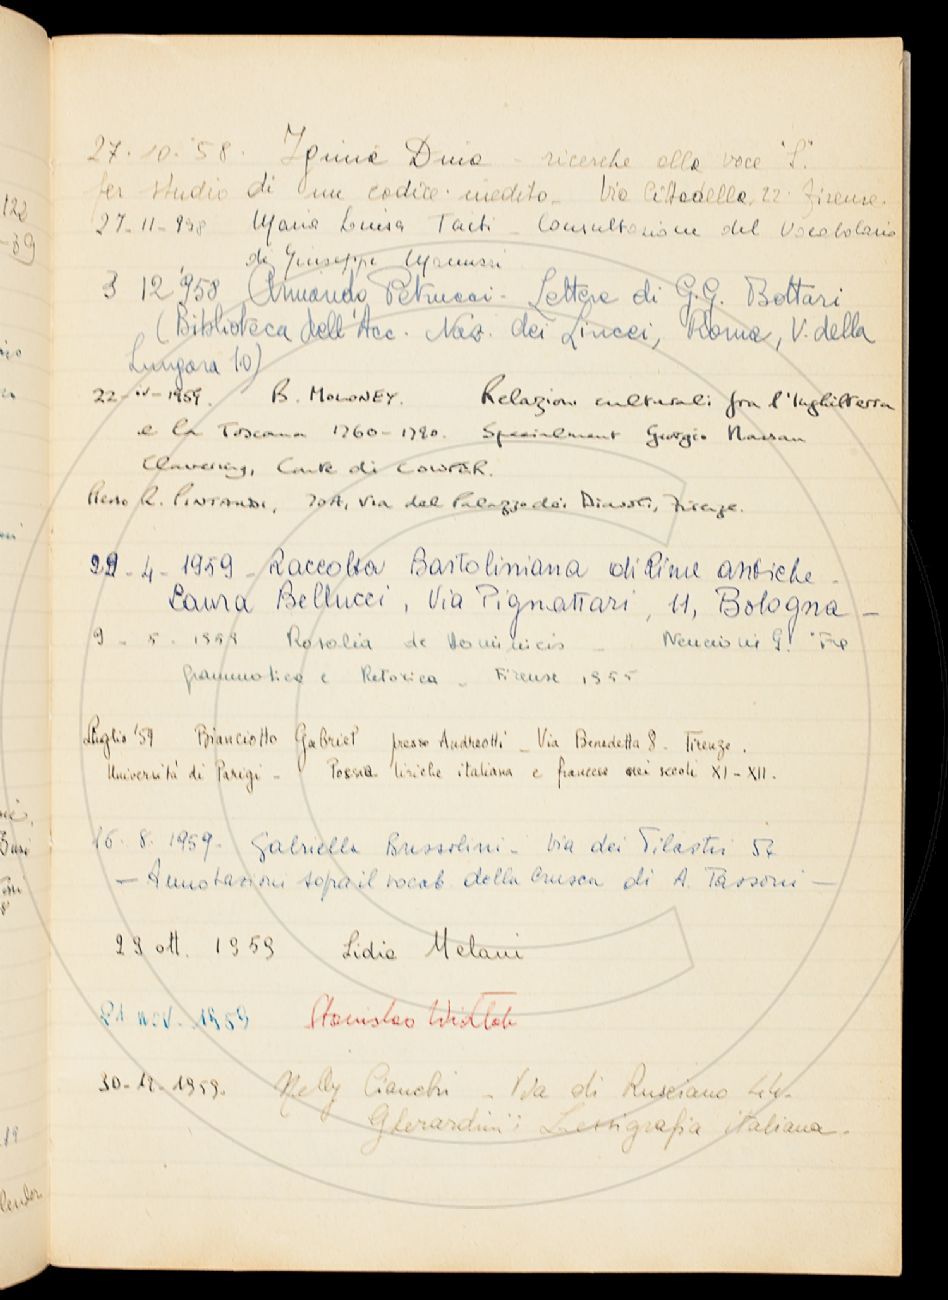 27. 10. '58. Igina Dina - ricerche alla voce "S".
per studio di un codice inedito - Via Cittadella, 22. Firenze.
27-11-958 Maria Luisa Tacti - Consultazione del Vocabolario
di Giuseppe Manuzzi
3 12 '958 Armando Petrucci - Lettere di G.G. Bottari
(Biblioteca dell'Acc. Naz. dei Lincei, Roma, V. della
Lungara 10)
22-IV-1959. B. MOLONEY. Relazioni culturali fra l'Inghilterra
e la Toscana 1760-1790. Specialment Giorgio Nassau
Clavering, Conte di COWPER.
Presso R. PINTAUDI, 30A, Via del Palazzo dei Diavoli, Firenze.
29 - 4 - 1959 - Raccolta Bartoliniana di Rime antiche -
Laura Bellucci, Via Pignattari, 11, Bologna -
9 - 5 - 1959 Rosalia de Dominicis - Nencioni G. "Fra
grammatica e Retorica - Firenze 1955
Luglio '59 Bianciotto Gabriel presso Andreotti - Via Benedetta 8 - Firenze.
Università di Parigi - Poesia liriche italiana e francese nei secoli XI - XII.
16. 8. 1959. Gabriella Brussolini - Via dei Pilastri 57
- Annotazioni sopra il vocab. della Crusca di A. Tassoni -
29 ott. 1959 Lidia Melani
21 nov. 1959 Stanislao
30-12-1959. Nelly Cianchi - Via di Rusciano 44.
Gherardini: Lessigrafia italiana.
122
-39
19